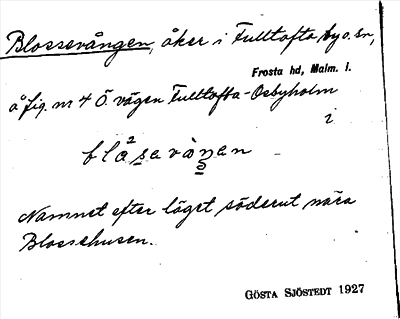 Blossevången, åker i Fulltofta by o. sn,
Frosta hd, Malm. l.
å fig. nr 4 Ö. vägen Fulltofta-Osbyholm
i
Namnet efter läget söderut nära
Blossehusen.
GÖSTA SJÖSTEDT 1927